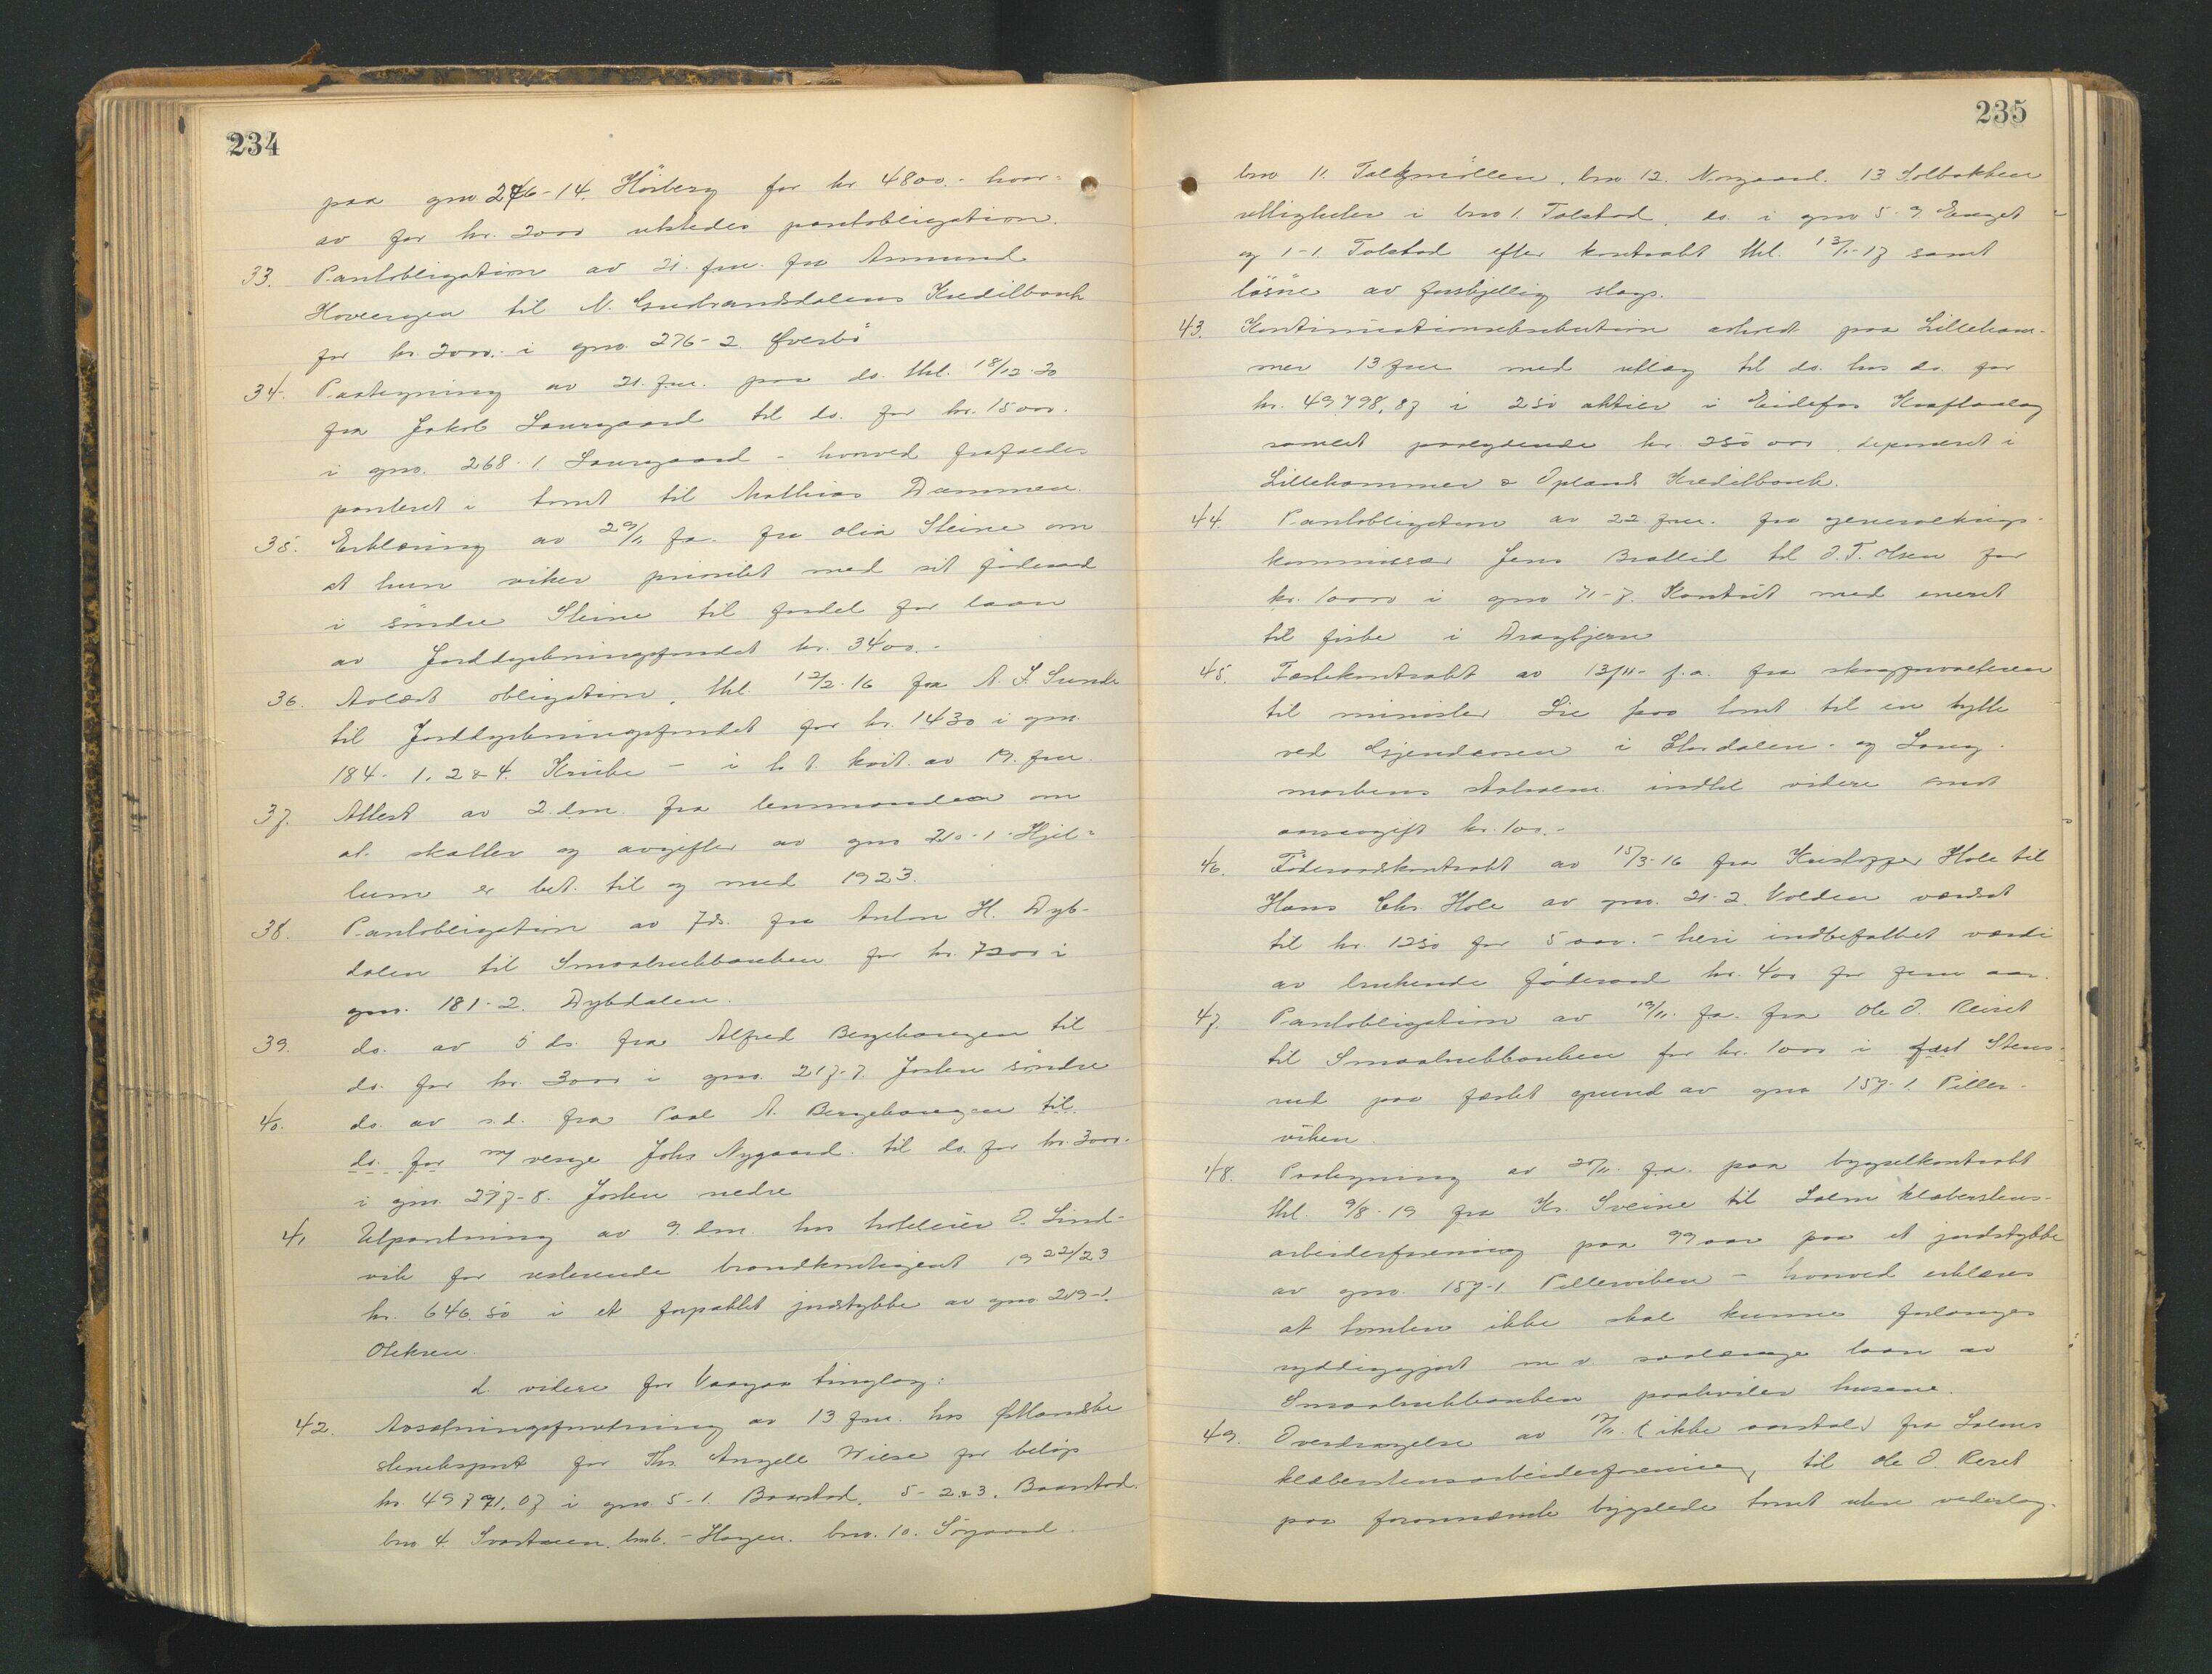 234
paa gno. 276-14. Hörberg for kr. 4800.- hvor-
av for kr. 2000 utstedes pantobligation.
33. Pantobligation av 21. fm. fra Amund
Hovengen til N. Gudbrandsdalens Kreditbank
for kr. 2000.- i gno. 276-2 Øverbö
34. Paategning av 21. fm. paa do. thl. 18/12-20
fra Jakob Laurgaard til do. for kr. 15000.
i gno. 268-1. Laurgaard - hvorved frafaldes
panteret i tomt til Mathias Dammen.
35. Erklæring av 29/11 f.a. fra Olia Steine om
at hun viker prioritet med sit föderaad
i söndre Steine til fordel for laan
av Jorddyrkningsfondet kr. 3400.-
36. Avlæst obligation, thl. 12/2-16 fra A. J. Sunde
til Jorddyrkningsfondet for kr. 1430 i gno.
184-1, 2 & 4. Kruke - i h. t. kvit. av 19. fm.
37. Attest av 2. dm. fra lensmanden om
at skatter og avgifter av gno 210-1. Hjel-
lum er bet. til og med 1923.
38. Pantobligation av 7 ds. fra Anton H. Dyb-
dalen til Smaabrukbanken for kr. 7200 i
gno. 181-2. Dybdalen.
39. do. av 5 ds. fra Alfred Bergehaugen til
do. for kr. 3000 i gno. 217-7. Jorlien söndre
40. do. av s.d. fra Paal A. Bergehaugen til
do. for m/ verge Johs Nygaard. til do. for kr. 3000.
i gno. 217-8. Jorlien nedre
41 Utpantning av 9. dm. hos hoteleier O. Lind-
vik for resterende brandkontingent 1922/23
kr. 646.50 i et forpaktet jordstykke av gno. 219-1.
Oteksen.
d. videre for Vaagaa tinglag:
42. Avsætningsforretning av 13. fm. hos Østlandske
Steneksport for Th. Angell Wiese for belöp
kr. 49791.07 i gno. 5-1. Baarstad, 5-2&3. Baarstad.
bno 4. Svartaaen, bn 6. - Hagen. bno. 10. Sörgaard.
235
bno 11. Talkmöllen, bno. 12. Norgaard. 13 Solbakken
rettigheter i bno 1. Tolstad, do. i gno 5-9. Enget
og 1-1. Tolstad efter kontrakt thl. 13/1-17 samt
lösöre av forskjellig slags.
43. Kontinuationseksekution avholdt paa Lilleham-
mer 13 fm med utlæg til do. hos do. for
kr. 49798,87 i 250 aktier i Eidefos Kraftanlæg
samlet paalydende kr. 250000, deponeret i
Lillehammer & Oplands Kreditbank.
44. Pantobligation av 22. fm. fra generalkrigs-
kommissær Jens Bratlid til O. T. Olsen for
kr. 10000 i gno 71-7. Kontrit med eneret
til fiske i Dragtjern
45. Festekontrakt av 13/11- f.a. fra skogforvalteren
til minister Lie paa tomt til en hytte
ved Gjendeosen i Stordalen- og Lang-
morkens statsalm. indtil videre mot
aarsavgift kr. 100.-
46. Föderaadskontrakt av 15/3-16 fra Kristoffer Hole til
Hans Chr. Hole av gno. 21-2. Volden værdsat
til kr. 1250 for 5000.- heri indbefattet værdi
av beskrevne föderaad kr. 400 for fem aar.
47. Pantobligation av 19/11. f.a. fra Ole O. Reiret
til Smaabrukbanken for kr. 1000 i fæst Stens-
rud paa fæstet grund av gno 157-1. Piller-
viken.
48. Paategning av 20/11. f.a. paa bygselkontrakt
thl. 9/8-19 fra Kr. Sveine til Lalm klæberstens-
arbeiderforening paa 99 aar paa et jordstykke
av gno. 157-1. Pillerviken - hvorved erklæres
at tomten ikke skal kunne forlanges
ryddiggjort m v. saalænge laan av
Smaabrukbanken paahviler husene.
49. Overdragelse av 17/11. (ikke aarstal) fra Lalms
klæberstensarbeiderforening, til Ole O. Reiret
paa forannævnte bygslede tomt uten vederlag.